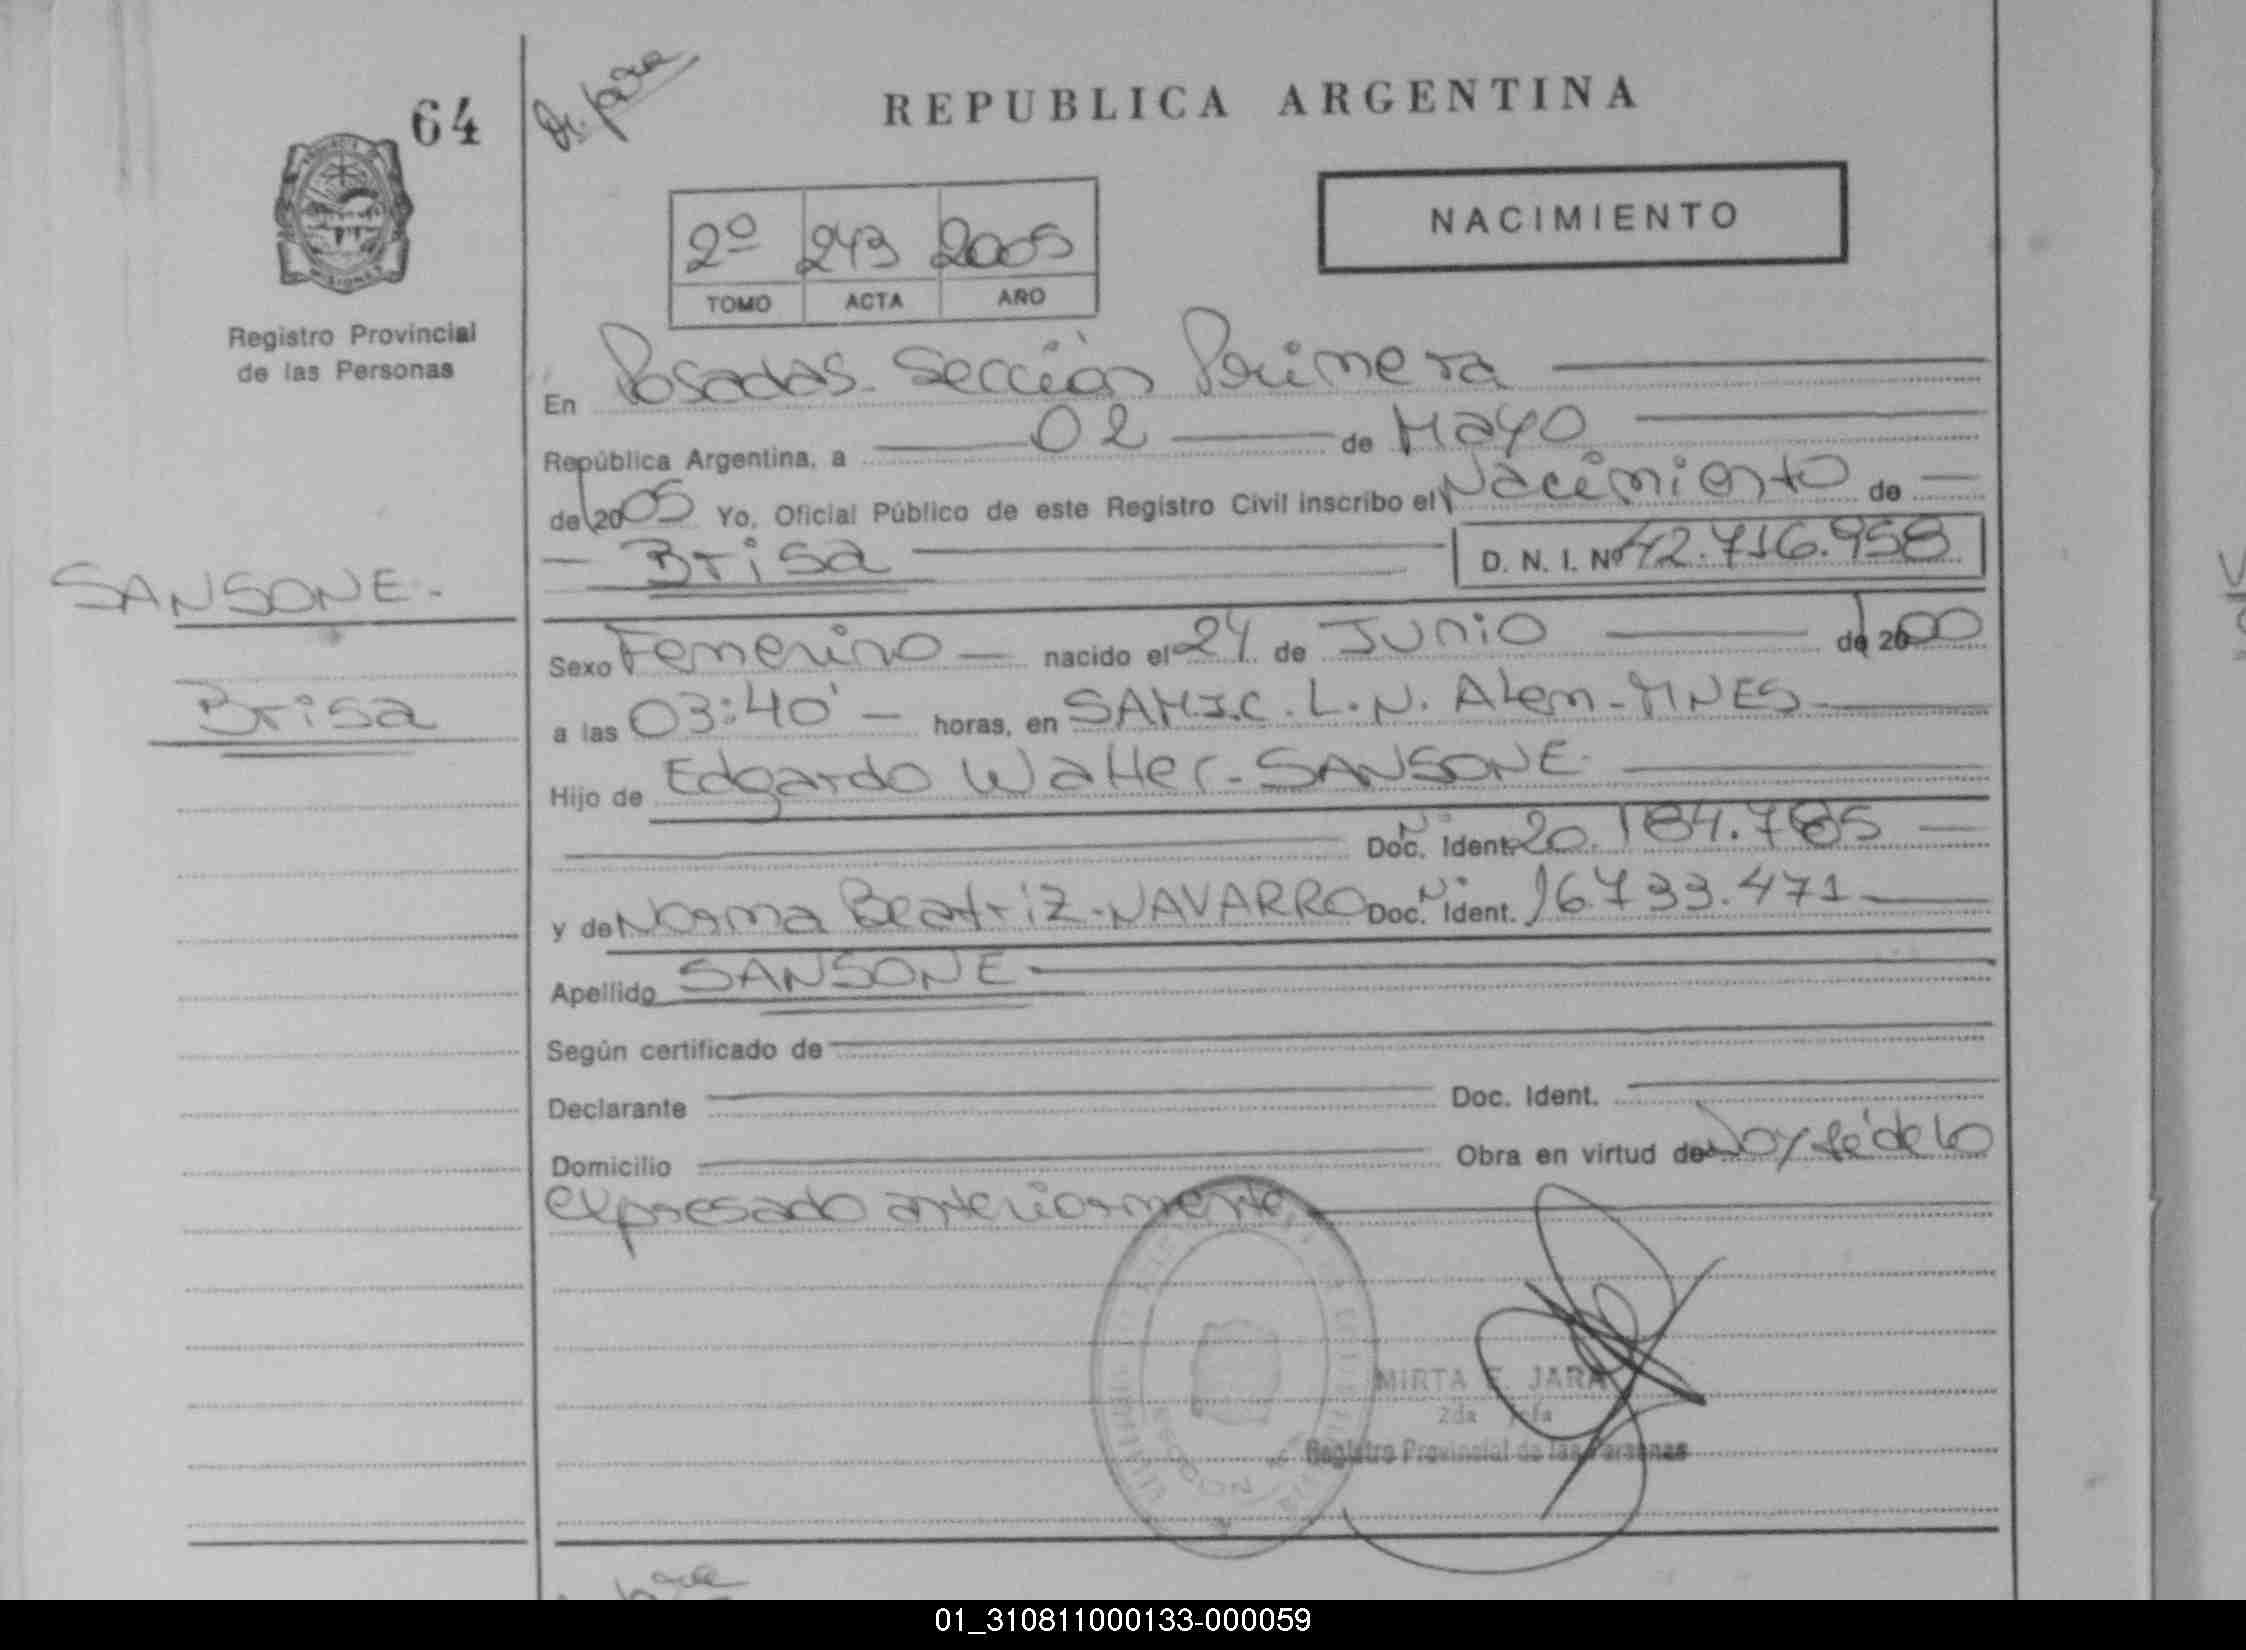 64
REPUBLICA ARGENTINA
NACIMIENTO
2º 243 2005
TOMO ACTA AÑO
Registro Provincial
de las Personas
En Posadas. Sección Primera
República Argentina, a 02 de Mayo
de 2005 Yo, Oficial Público de este Registro Civil inscribo el Nacimiento de
Brisa D. N. I. Nº 42.716.958
SANSONE.
Brisa
Sexo Femenino nacido el 24 de Junio de 2000
a las 03:40' horas, en SAMIC. L.N. Alem-MNES
Hijo de Edgardo Walter-SANSONE.
Doc. Nº Ident. 20.184.785
y de Norma Beatriz-NAVARRO Doc. Nº Ident. 16.733.471
Apellido SANSONE
Según certificado de
Declarante Doc. Ident.
Domicilio Obra en virtud de Doy fé de lo
expresado anteriormente
MIRTA E. JARA
2da Jefa
Registro Provincial de las Personas
01_310811000133-000059